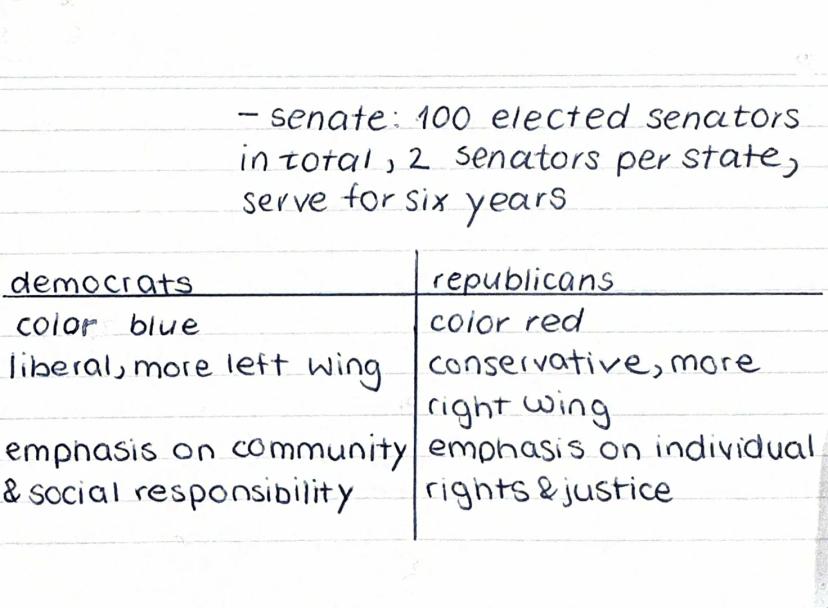 - senate: 100 elected senators
in total, 2 senators per state,
serve for six years
democrats
republicans
color blue
color red
liberal, more left wing
conservative, more
right wing
emphasis on community
emphasis on individual
& social responsibility
rights & justice